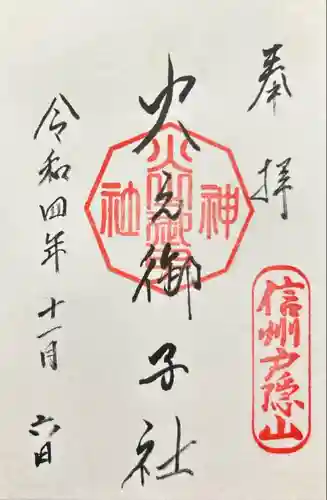 奉拝
信州戸隠山
火之御子社
火之御子
神社
令和四年十一月六日